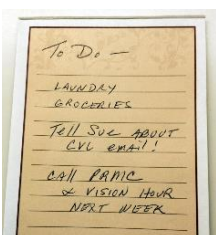 To Do —
LAUNDRY
GROCERIES
Tell Sue ABOUT
CVL email!
CAll
& VISION HOUR
NEXT WEEK